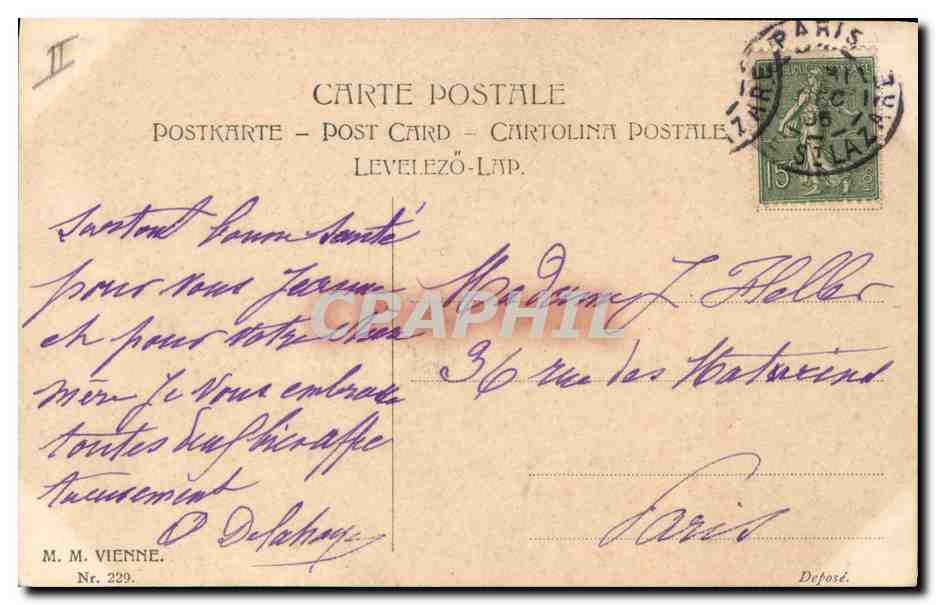 II
CARTE POSTALE
POSTKARTE – POST CARD – CARTOLINA POSTALE
LEVELEZŐ-LAP.
PARIS
ST LAZARE
15
surtout bonne santé
pour vous
et pour votre chère
mère Je vous embrasse
toutes deux bien affec
tueusement
Delahaye
Madame J. Heller
36 rue des Maturins
Paris
CPAPHIL
M. M. VIENNE.
Nr. 229.
Deposé.